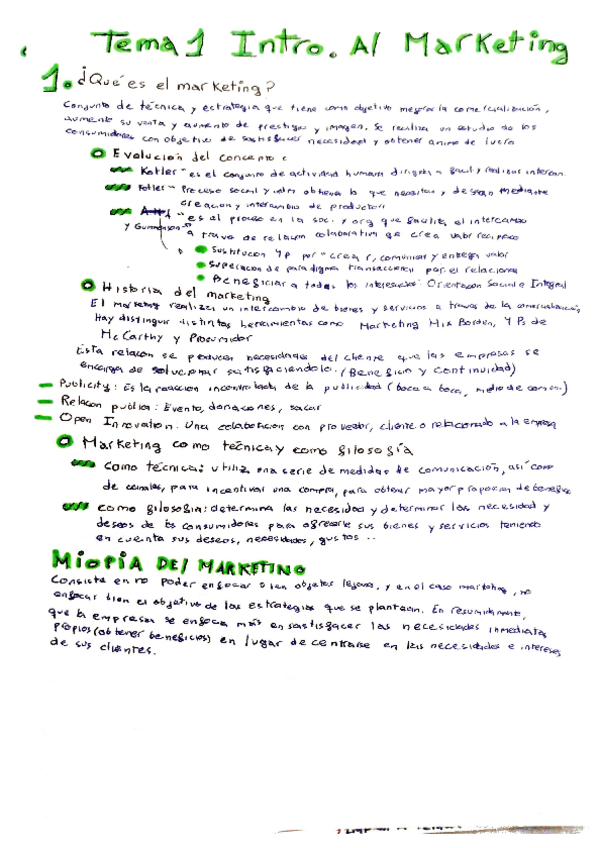 Tema 1 Intro. Al Marketing
1. ¿Qué es el marketing?
Conjunto de técnica y estrategia que tiene como objetivo mejorar la comercialización,
aumento su venta y aumento de prestigio y imagen. Se realiza un estudio de los
consumidores con objetivo de satisfacer necesidad y obtener animo de lucro
Evolución del concepto:
Kotler "es el conjunto de actividad humana dirigida a facil y realizar intercam.
Kotler "Proceso social y obtiene lo que necesitas y desean mediante
creacion y intercambio de productos"
"es el proceso en la soci. y org que facilita el intercambio
y a traves de relacion colaborativa que crea valor reciproco
Sustitucion 4p por "crear, comunicar y entrega valor
Superacion de paradigma transaccional por el relacional
Beneficiar a todas los interesados: Orientacion Social e Integral
Historia del marketing
El marketing realiza un intercambio de bienes y servicios a traves de la comercialización
Hay distinguir distintas herramientas como Marketing Mix Borden, 4 Ps de
McCarthy y Prosumidor
Esta relacion se producen necesidades del cliente que las empresas se
encarga de solucionar satisfaciendolo. (Beneficion y Continuidad)
Publicity: Es la reaccion incontrolada de la publicidad (boca a boca, medio de comun.)
Relacion publica: Evento, donaciones,
Open Innovation: Una colaboracion con proveedor, cliente o relacionado a la empresa
Marketing como técnica y como filosofía
Como técnica: utiliza una serie de medidas de comunicación, así como
de canales, para incentivar una compra, para obtener mayor proporcion de beneficio
como filosofia: determina las necesidad y determinar las necesidad y
deseos de los consumidores para ofrecerle sus bienes y servicios teniendo
en cuenta sus deseos, necesidades, gustos ..
Miopia Del MARKETING
Consiste en no poder enfocar bien objetos lejanos, y en el caso marketing, no
enfocar bien el objetivo de las estrategias que se plantean. En resumidamente,
que la empresa se enfoca más en satisfacer las necesidades inmediatas
propios (obtener beneficios) en lugar de centrarse en las necesidades e intereses
de sus clientes.